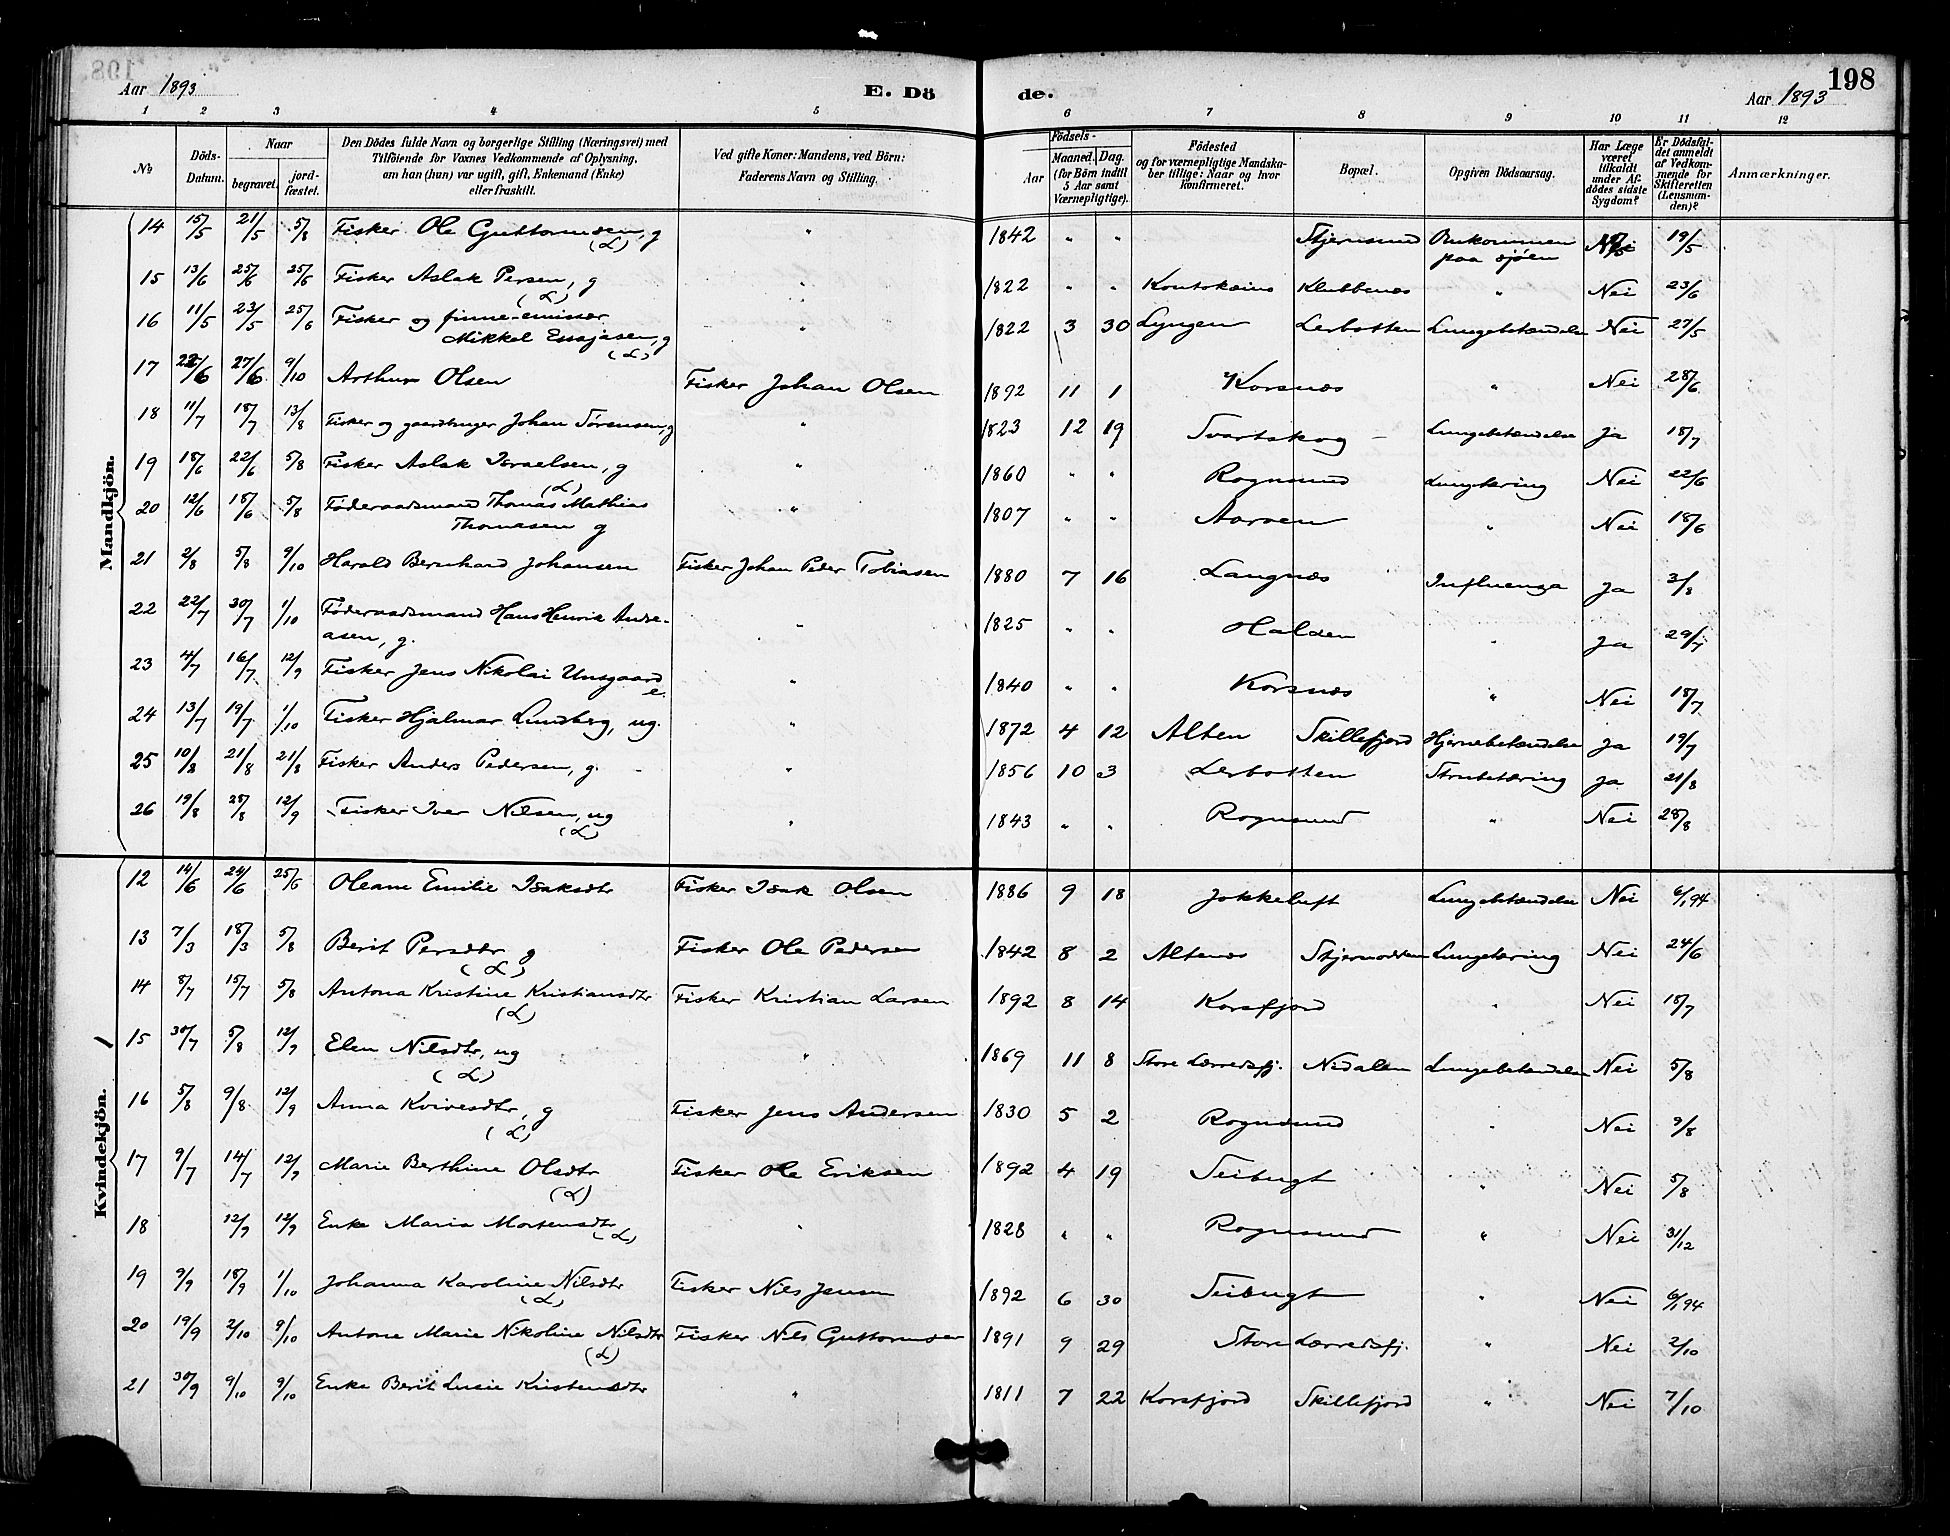 198
Aar 1893
E. Döde.
Aar 1893
1 2 3 4 5 6 7 8 9 10 11 12
No
Döds-Datum.
Naar
begravet.
jord-fæstet.
Den Dödes fulde Navn og borgerlige Stilling (Næringsvei) med
Tilföiende for Voxnes Vedkommende af Oplysning,
om han (hun) var ugift, gift, Enkemand (Enke)
eller fraskilt.
Ved gifte Koner: Mandens, ved Börn:
Faderens Navn og Stilling.
Födsels-
Aar
Maaned. Dag.
(for Börn indtil
5 Aar samt
Værnepligtige).
Födested
og for værnepligtige Mandska-
ber tillige: Naar og hvor
konfirmeret.
Bopæl.
Opgiven Dödsaarsag.
Har Læge
været
tilkaldt
under Af-
dödes sidste
Sygdom?
Er Dödsfal-
det anmeldt
af Vedkom-
mende for
Skifteretten
(Lensman-
den)?
Anmærkninger.
Mandkjön.
14 15/5 21/5 5/8 Fisker Ole Guttormsen, g (L) " 1842 " " Stjernsund Omkommen paa sjöen Nei 19/5
15 13/6 25/6 25/6 Fisker Aslak Persen, g (L) " 1822 " " Koutokeino Klubbenes " Nei 23/6
16 11/5 23/5 25/6 Fisker og finne-emissær
Mikkel Ensjasen, g (L) " 1822 3 30 Lyngen Lerbotten Lungebetændelse Nei 27/5
17 22/6 27/6 9/10 Arthur Olsen Fisker Johan Olsen 1892 11 1 Korsnes " Nei 28/6
18 11/7 18/7 13/8 Fisker og gaardbruger Johan Sørensen, g " 1823 12 19 Svartskog - Lungebetændelse Ja 18/7
19 18/6 22/6 5/8 Fisker Aslak Israelsen, g (L) " 1860 " " Rognsund Lungtæring Nei 22/6
20 12/6 18/6 5/8 Føderaadsmand Thomas Mathias
Thomasen g " 1807 " " Aarøen " Nei 18/6
21 2/8 5/8 9/10 Harald Bernhard Johansen Fisker Johan Peder Tobiasen 1880 7 16 Langnes Influenza Ja 3/8
22 22/7 30/7 1/10 Føderaadsmand Hans Henrik Andre-
asen, g. " 1825 " " Halden " Ja 29/7
23 4/7 16/7 12/9 Fisker Jens Nikolai Unsgaard e. " 1840 " " Korsnes " Nei 18/7
24 13/7 19/7 1/10 Fisker Hjalmar Lundberg, ug. " 1872 4 12 Alten Skillefjord Hjernebetændelse Ja 19/7
25 10/8 21/8 21/8 Fisker Anders Pedersen, g. " 1856 10 3 Lerbotten Strubetæring Ja 21/8
26 19/8 28/8 12/9 Fisker Iver Nilsen, ug (L) " 1843 " " Rognsund " Nei 28/8
Kvindekjön.
12 14/6 24/6 25/6 Oleane Emilie Isaksdtr Fisker Isak Olsen 1886 9 18 Jokkeluft Lungebetændelse Nei 6/1 94
13 7/3 18/3 5/8 Berit Persdtr g (L) Fisker Ole Pedersen 1842 8 2 Altenes Stjernodden Lungetæring Nei 24/6
14 8/7 15/7 5/8 Antona Kristine Kristiansdtr (L) Fisker Kristian Larsen 1892 8 14 Korsfjord " Nei 15/7
15 30/7 5/8 12/9 Elen Nilsdtr, ug (L) " 1869 11 8 Store Lerredsfj. Nedalen Lungebetændelse Nei 5/8
16 5/8 9/8 12/9 Anna Kvivesdtr, g (L) Fisker Jens Andersen 1830 5 2 Rognsund " Nei 9/8
17 9/7 14/7 12/9 Marie Berthine Olsdtr (L) Fisker Ole Eriksen 1892 4 19 Seibugt " Nei 5/8
18 12/9 12/9 Enke Maria Mortensdtr (L) " 1828 " " Rognsund " Nei 31/12
19 9/9 18/9 1/10 Johanna Karoline Nilsdtr (L) Fisker Nils Jensen 1892 6 30 Seibugt " Nei 6/1 94
20 19/9 2/10 9/10 Antone Marie Nikoline Nilsdtr (L) Fisker Nils Guttormsen 1891 9 29 Store Lerredsfj. " Nei 2/10
21 30/9 9/10 9/10 Enke Berit Lusie Kristensdtr " 1811 7 22 Korsfjord Skillefjord " Nei 7/10